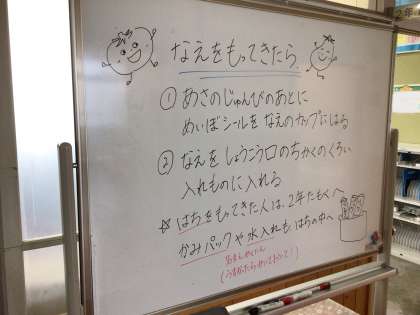 なえをもってきたら
① あさのじゅんびのあとに
めいぼシールを なえのカップにはる
② なえを しょうこう口のちかくのくろい
入れものに入れる
☆ はちをもってきた人は、2年だもくへ
かみパックや水入れも、はちの中へ